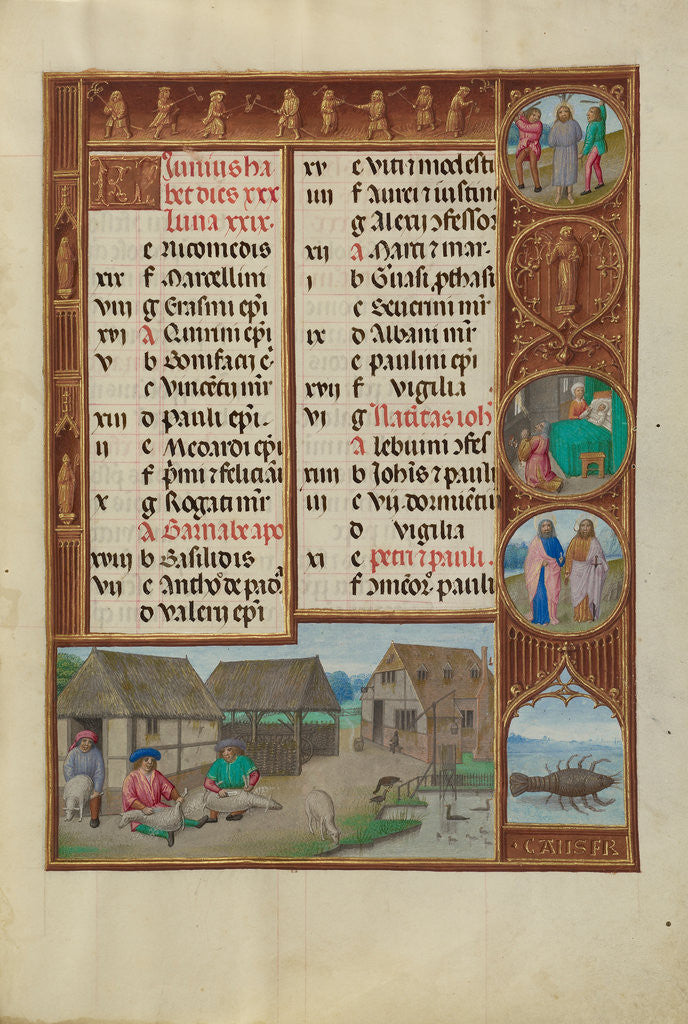 KL Junius ha
bet dies xxx
Luna xxix.
e Nicomedis
xix f Marcellini
viii g Erasmi epi
xvi A Quirini epi
v b Bonifacij e
c Vincetij mr
xiii d Pauli epi.
ii e Medardi epi
f pmi ⁊ feliciai
x g Rogati mr
A Barnabe apo
xviii b Basilidis
vii c Antho de pado
d Valerij epi
xv e Viti ⁊ modesti
iiii f Aurei ⁊ iustine
g Alexij ɔfessor
xii A Marci ⁊ mar-
i b Guasi ꝓthasi
c Seuerini mr
ix d Albani mr
e paulini epi
xvii f vigilia
vi g Natiitas ioh
A lebuini ɔfes
xiiii b Johis ⁊ pauli
iii c vij dormientiu
d vigilia
xi e petri ⁊ pauli.
f ɔmeor. pauli
CANSER